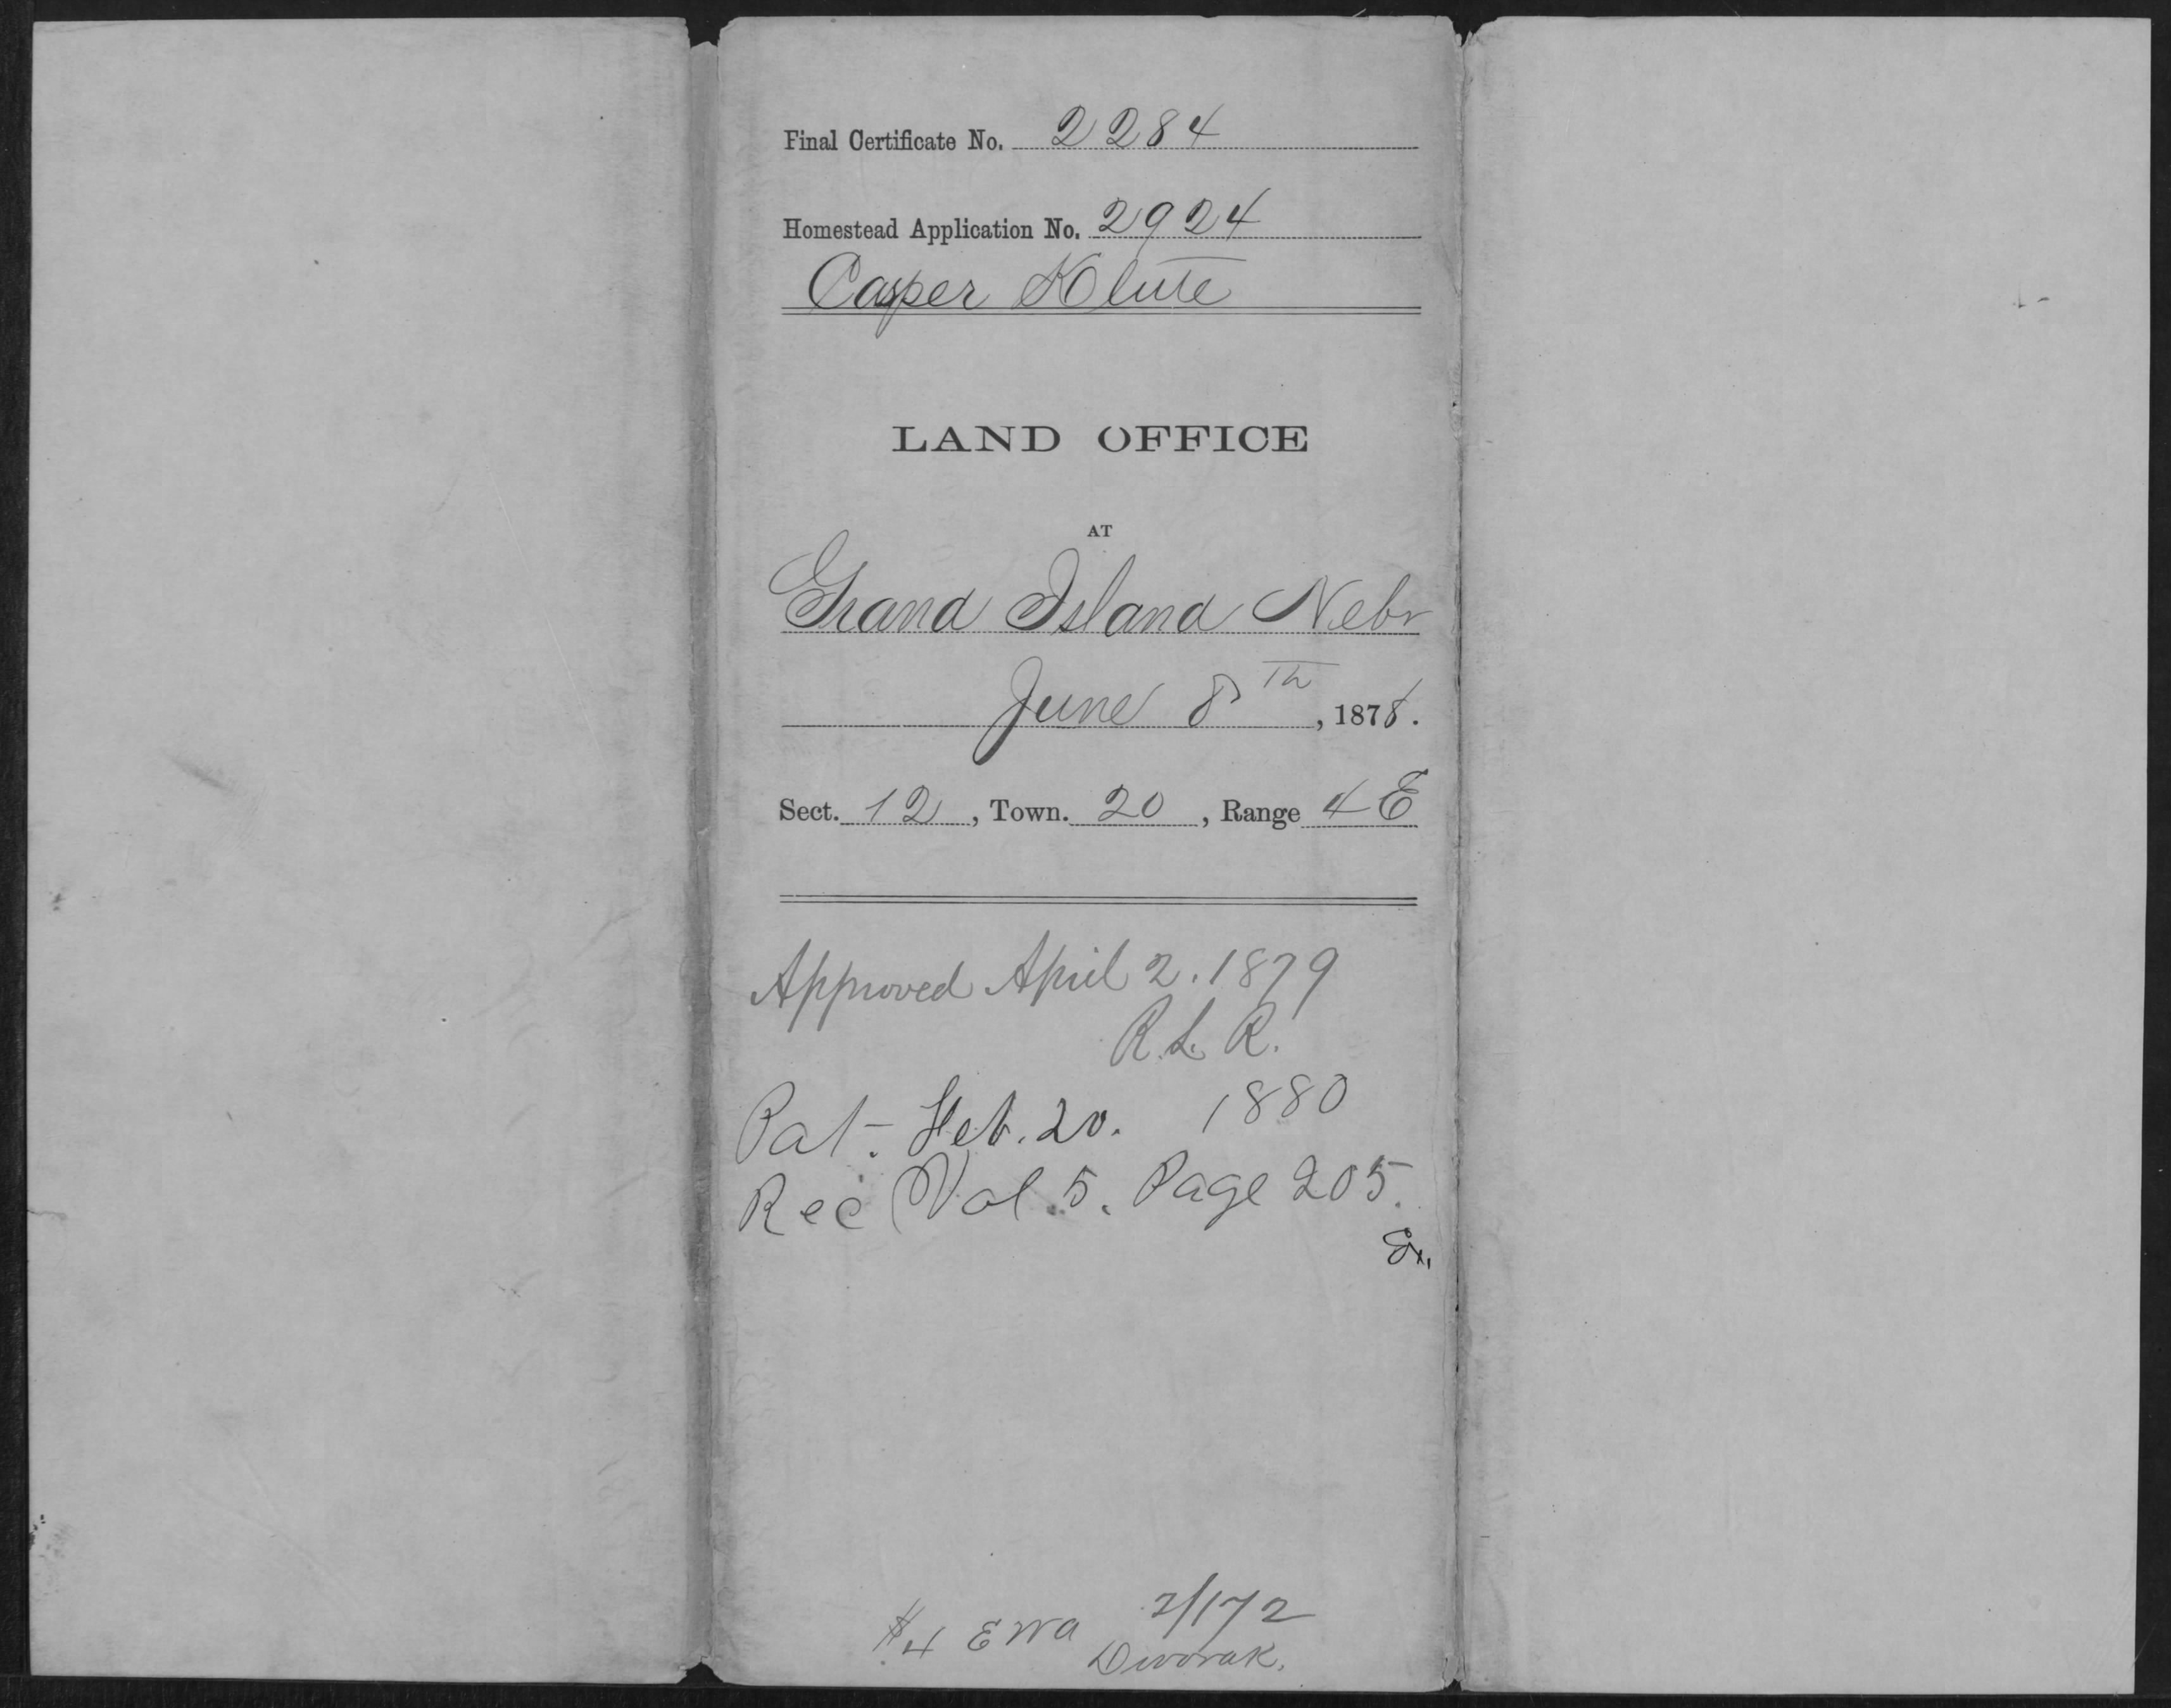 Final Certificate No. 2284
Homestead Application No. 2924
Casper Klute
LAND OFFICE
AT
Grand Island Nebr
June 8th, 1878.
Sect. 12, Town. 20, Range 4 E
Approved April 2. 1879
R. L. R.
Pat. Feb. 20. 1880
Rec Vol. 5. Page 205.
2/172
#4 EWA
Dworak.